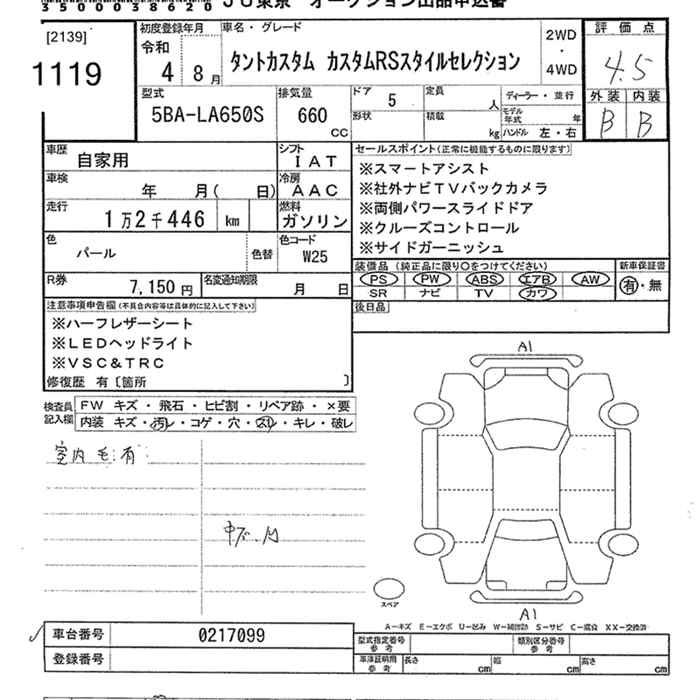 35000038020 JU東京 オークション出品申込書
[2139]
1119
初度登録年月
令和 4 8月
車名・グレード
タントカスタム カスタムRSスタイルセレクション
2WD
・
4WD
評価点
4.5
外装 内装
B B
型式
5BA-LA650S
排気量
660
cc
ドア 5
形状
定員 人
積載 kg
ディーラー・並行
モデル年式 年
ハンドル 左・右
車歴
自家用
シフト
IAT
車検
年 月( 日)
冷房
AAC
走行
1万2千446 km
燃料
ガソリン
色
パール
色替
色コード
W25
R券
7,150円
名変通知期限
月 日
セールスポイント(正常に機能するものに限ります)
※スマートアシスト
※社外ナビTVバックカメラ
※両側パワースライドドア
※クルーズコントロール
※サイドガーニッシュ
装備品(純正品に限り○をつけてください)
PS PW ABS エアB AW
SR ナビ TV カワ
新車保証書
有・無
後日品
注意事項申告欄(不具合内容等は具体的に記入して下さい)
※ハーフレザーシート
※LEDヘッドライト
※VSC&TRC
修復歴 有〔箇所 〕
検査員記入欄
FW キズ・飛石・ヒビ割・リペア跡・×要
内装 キズ・汚レ・コゲ・穴・スレ・キレ・破レ
室内毛有
A1
スペア
A1
A-キズ E-エクボ U-凹み W-補修跡 S-サビ C-腐食 XX-交換済
車台番号 0217099
登録番号
型式指定番号
参考
類別区分番号
参考
車庫証明用
参考
長さ cm 幅 cm 高さ cm